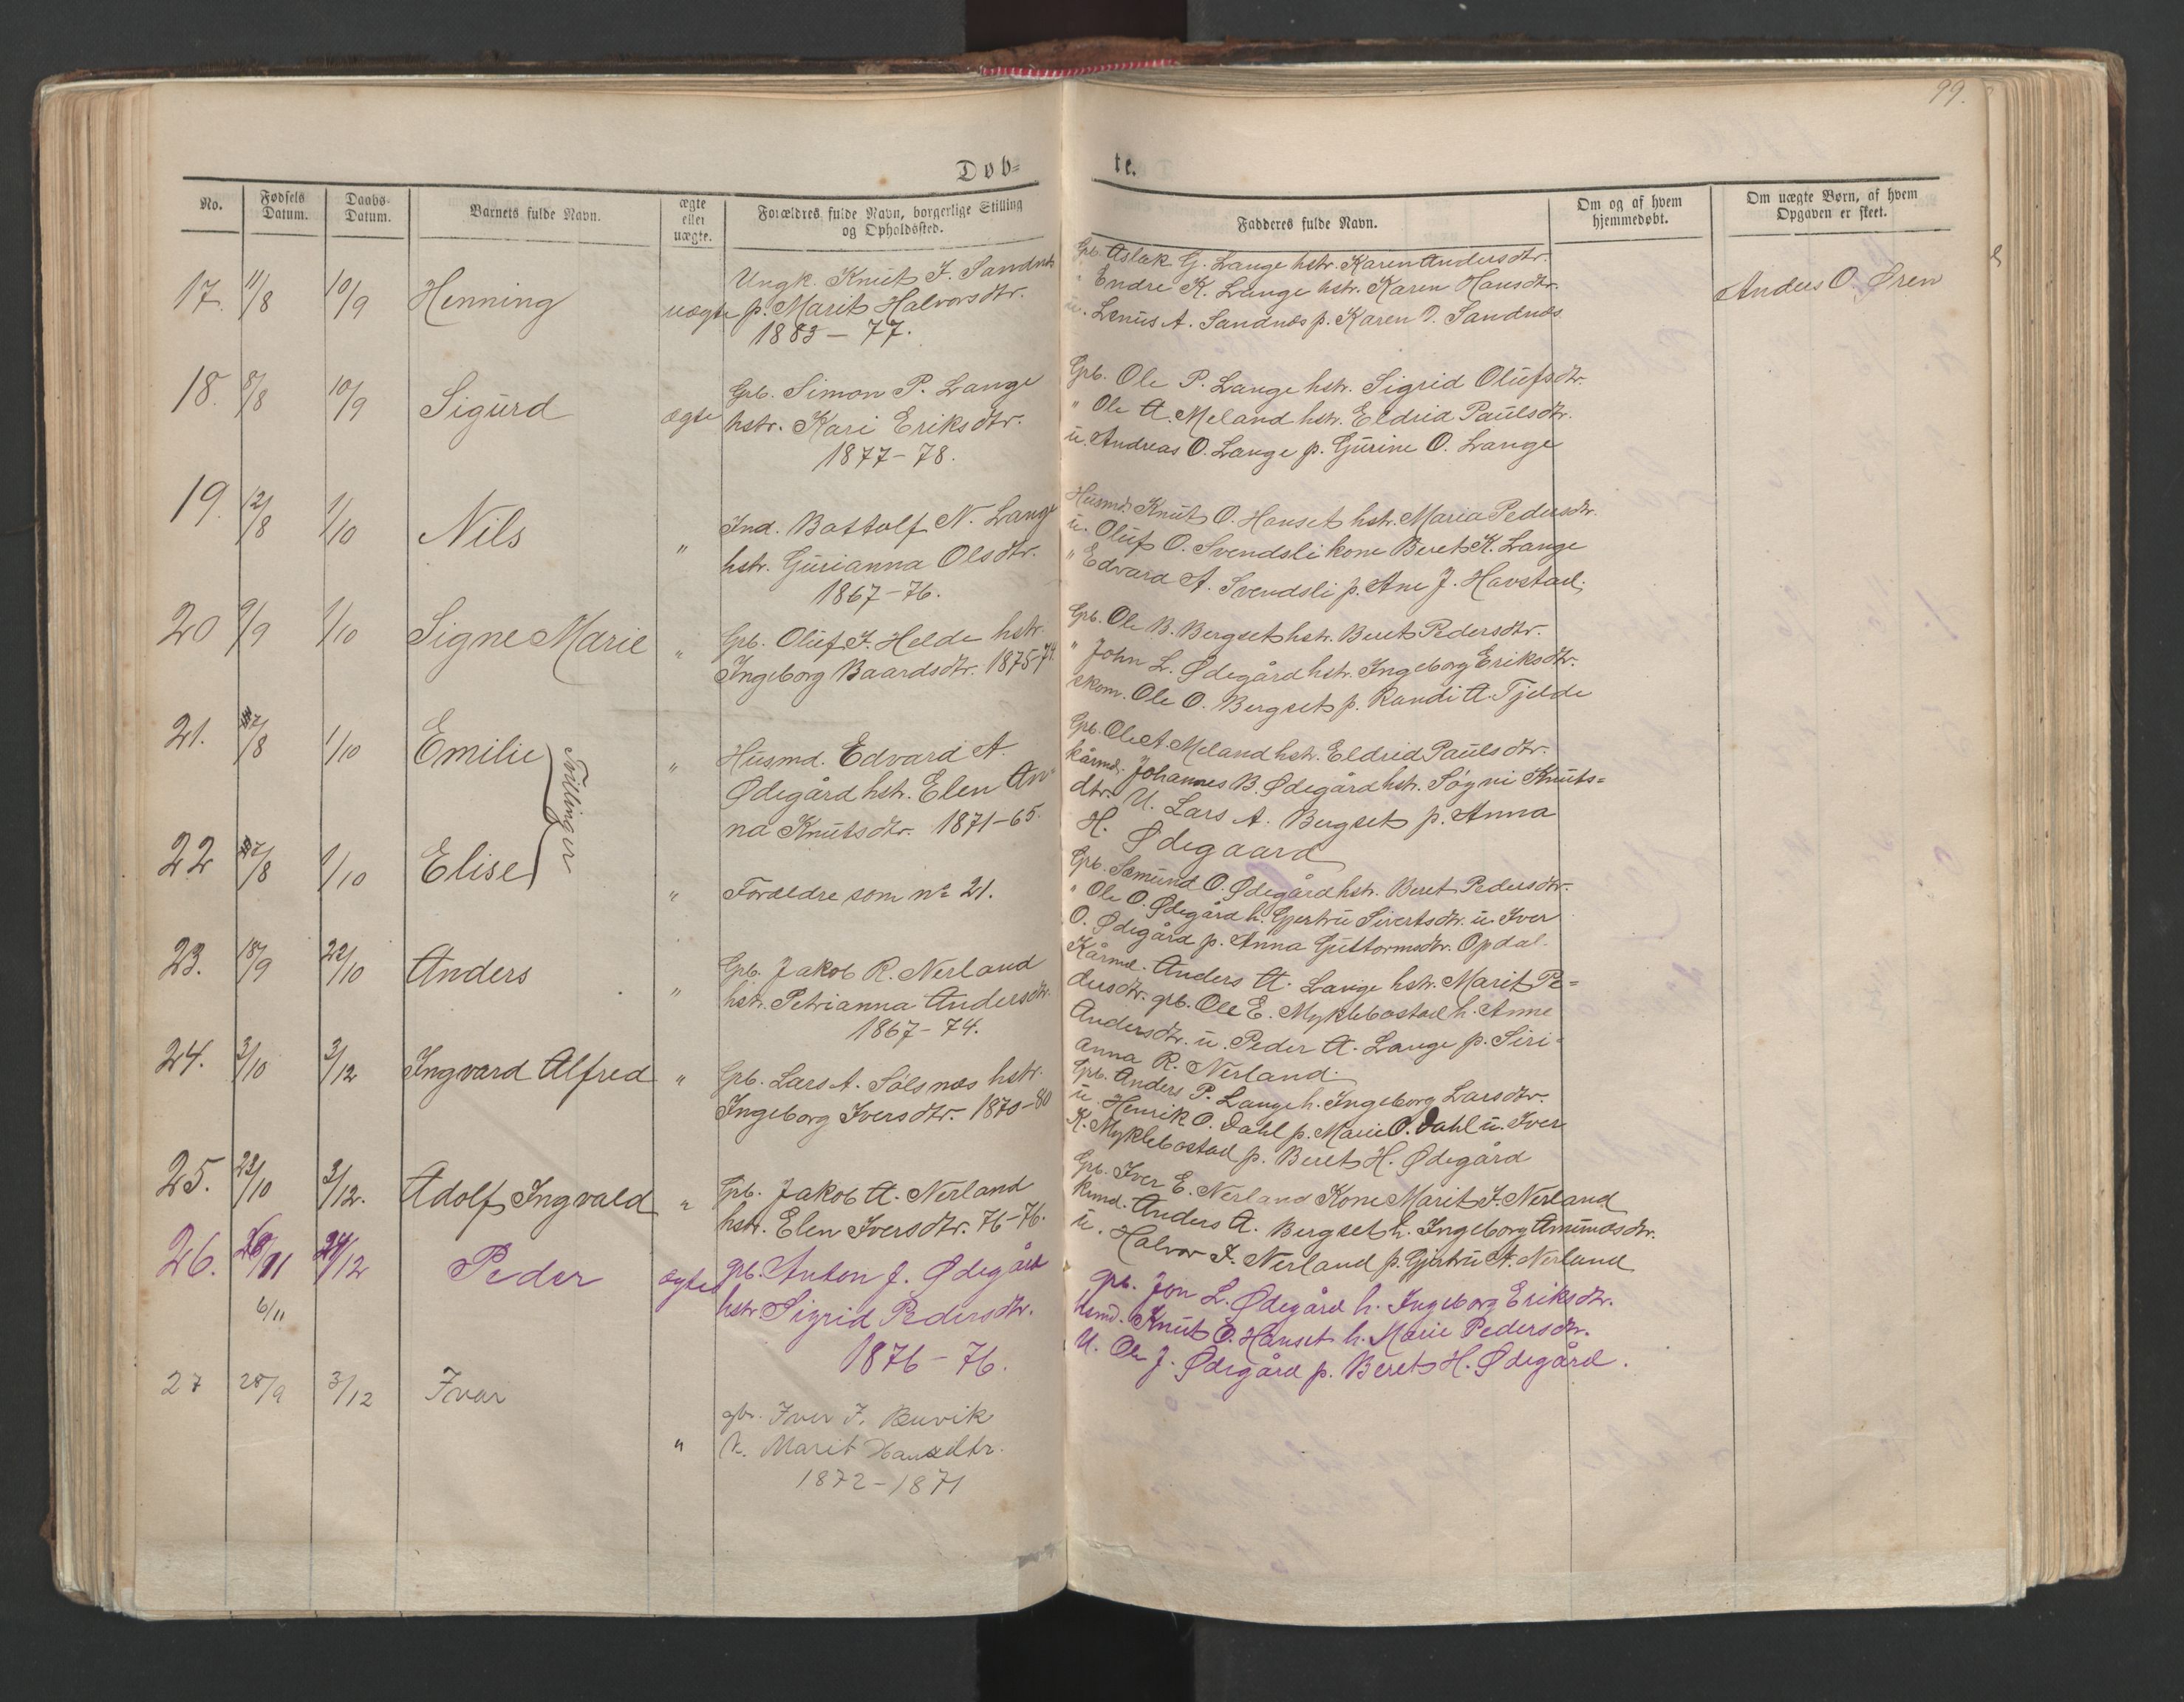 99.
Døb=
te.
No. Fødsels Datum. Daabs Datum. Barnets fulde Navn. ægte eller uægte. Forældres fulde Navn, borgerlige Stilling og Opholdssted. Fadderes fulde Navn. Om og af hvem hjemmedøbt. Om uægte Børn, af hvem Opgaven er skeet.
17. 11/8 10/9 Henning uægte Ungk. Knut I. Sandnes
p. Marit Halvorsdtr.
1883 - 77.
Grb. Aslak G. Lange hstr. Karen Andersdtr.
" Endre K. Lange hstr. Karen Hansdtr.
u. Lenus A. Sandnes p. Karen I. Sandnes
Anders O. Øren
18. 8/8 10/9 Sigurd ægte Grb. Simon P. Lange
hstr. Kari Eriksdtr.
1877-78.
Grb. Ole P. Lange hstr. Sigrid Olufsdtr.
" Ole A. Meland hstr. Eldrid Paulsdtr.
u. Andreas O. Lange p. Gurine O. Lange
19. 12/8 1/10 Nils " Ind. Bottolf N. Lange
hstr. Gurianna Olsdtr.
1867-76.
Husmd. Knut O. Hanset hstr. Maria Pedersdtr.
u. Oluf O. Svendsli kone Beret K. Lange
" Edvard A. Svendsli p. Ane J. Havstad.
20 9/9 1/10 Signe Marie " Grb. Oluf I. Helde hstr.
Ingeborg Baardsdtr. 1875-74.
Grb. Ole B. Bergset hstr. Beret Pedersdtr.
" John L. Ødegård hstr. Ingeborg Eriksdtr.
skom. Ole O. Bergset p. Randi A. Tjelde
21. 1/10 Emilie Tvillinger " Husmd. Edvard A.
Ødegård hstr. Elen An
na Knutsdtr. 1871-65.
Grb. Ole A. Meland hstr. Eldrid Paulsdtr.
kårmd. Johannes B. Ødegård hstr. Søgni Knuts=
dtr. U. Lars A. Bergset p. Anna
H. Ødegaard
22 1/10 Elise " Forældre som nº 21.
Grb. Samund O. Ødegård hstr. Beret Pedersdtr.
" Ole O. Ødegård h. Gjertru Sivertsdtr. u. Iver
O. Ødegård p. Anna Guttormsdtr. Opdal.
23. 18/9 22/10 Anders " Grb. Jakob R. Nerland
hstr. Petrianna Andersdtr.
1867-74.
Kårmd. Anders A. Lange hstr. Marit Pe=
dersdtr. grb. Ole E. Myklebostad h. Anne
Andersdtr. u. Peder A. Lange p. Siri=
anna R. Nerland.
24. 3/10 3/12 Ingvard Alfred " Grb. Lars A. Sølsnes hstr.
Ingeborg Iversdtr. 1870-80
Grb. Anders P. Lange h. Ingeborg Larsdtr.
u. Henrik O. Dahl p. Marie O. Dahl u. Iver
K. Myklebostad p. Beret H. Ødegård
25. 23/10 3/12. Adolf Ingvald " Grb. Jakob A. Nerland
hstr. Elen Iversdtr. 76-76.
Grb. Iver E. Nerland Kone Marit I. Nerland
krmd. Anders A. Bergset h. Ingeborg Amundsdtr.
u. Halvor I. Nerland p. Gjertru A. Nerland
26. 24/12 Peder ægte grb. Anton J. Ødegård
6/11 hstr. Sigrid Pedersdtr.
1876 - 76.
grb. Jon L. Ødegård h. Ingeborg Eriksdtr.
husmd. Knut O. Hanset h. Marie Pedersdtr.
U. Ole J. Ødegård p. Beret H. Ødegård.
27 28/9 3/12 Ivar " gbr. Iver I. Buvik
h. Marit Hansdtr.
1872-1871